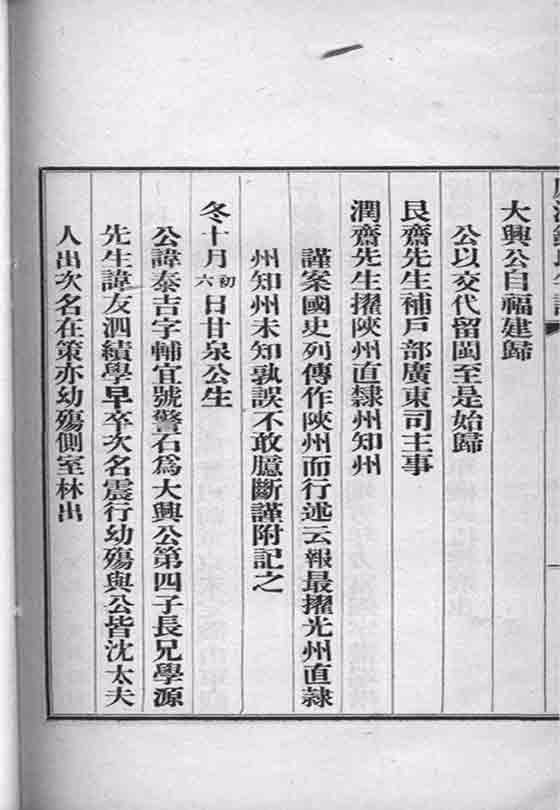 大興公自福建歸
公以交代留閩至是始歸
艮齋先生補戶部廣東司主事
潤齋先生擢陝州直隸州知州
謹案國史列傳作陝州而行述云報最擢光州直隸
州知州未知孰誤不敢臆斷謹附記之
冬十月初六日甘泉公生
公諱泰吉字輔宜號警石爲大興公第四子長兄學源
先生諱友泗績學早卒次名震行幼殤與公皆沈太夫
人出次名在策亦幼殤側室林出